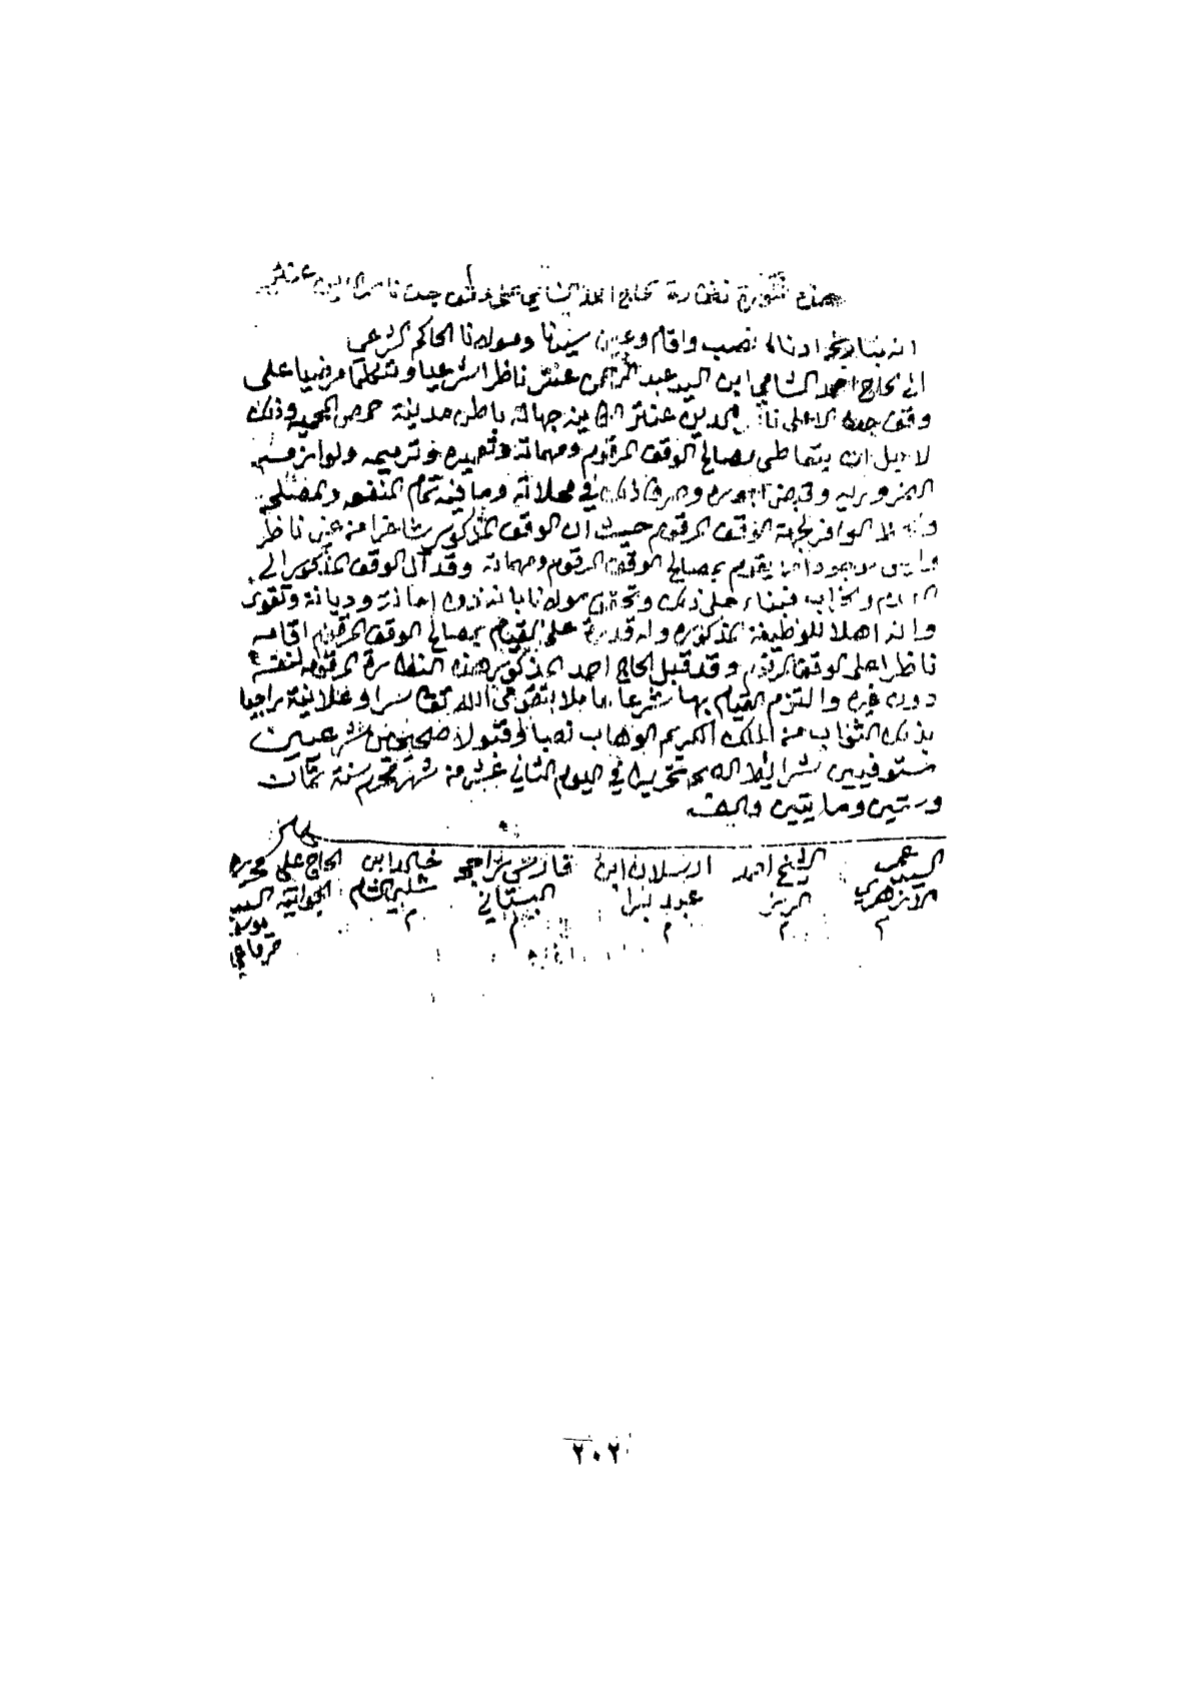 هذه صورة نظارة الحاج احمد الشامي على وقف جده ناصر الدين عنتر
انه بتاريخ ادناه نصب واقام وعين سيدنا ومولانا الحاكم الشرعي
الى الحاج احمد الشامي ابن السيد عبد الرحمن عنتر ناظرا شرعيا ومتكلما مرضيا على
وقف جده الاعلى ناصر الدين عنتر الكاينة جهاته باطن مدينة حمص المحمية وذلك
لاجل ان يتعاطى مصالح الوقف المرقوم ومهماته وتعميره وترميمه ولوازمه
الضرورية وقبض اجوره وصرف ذلك في محلاته وما فيه تمام المنفعة والمصلحة
الوافر لجهة الوقف المرقوم حيث ان الوقف المذكور شاغرا من غير ناظر
يقوم بمصالح الوقف المرقوم ومهماته وقد آل الوقف المذكور الى
والخراب فبناء على ذلك وتحقق مولانا بانه ذو امانة وديانة وتقوى
وانه اهلا للوظيفة المذكورة وله قدرة على القيام بمصالح الوقف المرقوم اقامه
ناظرا على الوقف المرقوم وقد قبل الحاج احمد المذكور هذه النظارة المرقومة لنفسه
دون غيره والتزم القيام بها شرعا عاملا بتقوى الله تعالى سرا وعلانية راجيا
بذلك الثواب من الملك الكريم الوهاب نصبا وقبولا صحيحين شرعيين
مستوفيين شرايطهما تحريرا في اليوم الثاني عشر من شهر محرم سنة ثمان
وستين ومايتين والف
السيد عمر الازهري
الشيخ احمد
ارسلان ابن
خالد ابن
الحاج علي
السيد
٢٠٢